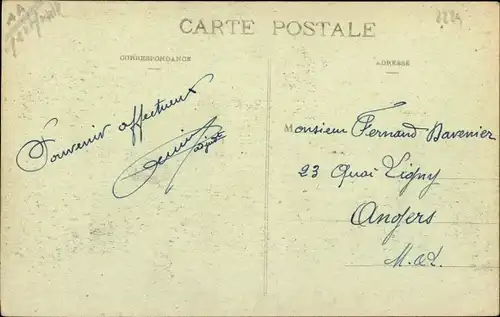 CARTE POSTALE
CORRESPONDANCE
ADRESSE
Souvenir affectueux
Monsieur Fernand Davenier
23 Quai Ligny
Angers
M.&L.